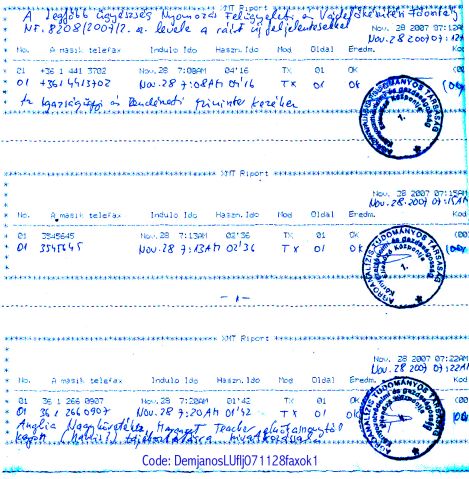 A Legfőbb Ügyészség Nyomozás Felügyeleti és Vádelőkészítési Főosztály
NF. 8208/2007/2. a. levele a ráírt új feljelentésekkel
Nov. 28 2007 07:12A
Nov. 28 2007 07:12A
No. A masik telefax Indulo Ido Haszn.Ido Mod Oldal Eredm. Kod
01 +36 1 441 3702 Nov. 28 7:08AM 04'16 TX 01 OK (00
01 +36 1 4413702 Nov. 28 7:08 AM 04'16 TX 01 OK (00
Az Igazságügyi és Rendészeti Miniszter kezében
AGROANALÍZIS TUDOMÁNYOS TÁRSASÁG
1.
XMT Riport
Nov. 28 2007 07:15AM
Nov. 28. 2007 07:15AM
No. A masik telefax Indulo Ido Haszn.Ido Mod Oldal Eredm. Kod
01 3545645 Nov. 28 7:13AM 02'36 TX 01 OK (00
01 3545645 Nov. 28 7:13AM 02'36 TX 01 OK (00
AGROANALÍZIS TUDOMÁNYOS TÁRSASÁG
1.
- 1 -
XMT Riport
Nov. 28 2007 07:22AM
Nov. 28 2007 07:22AM
No. A masik telefax Indulo Ido Haszn.Ido Mod Oldal Eredm. Kod
01 36 1 266 0907 Nov. 28 7:20AM 01'42 TX 01 OK (00
01 36 1 266 0907 Nov. 28 7:20 AM 01'42 TX 01 OK (00
Anglia Nagykövetsége Margaret Teacher
tájékoztatásra hivatkozással
AGROANALÍZIS TUDOMÁNYOS TÁRSASÁG
1.
Code: DemjanosLUflj071128faxok1